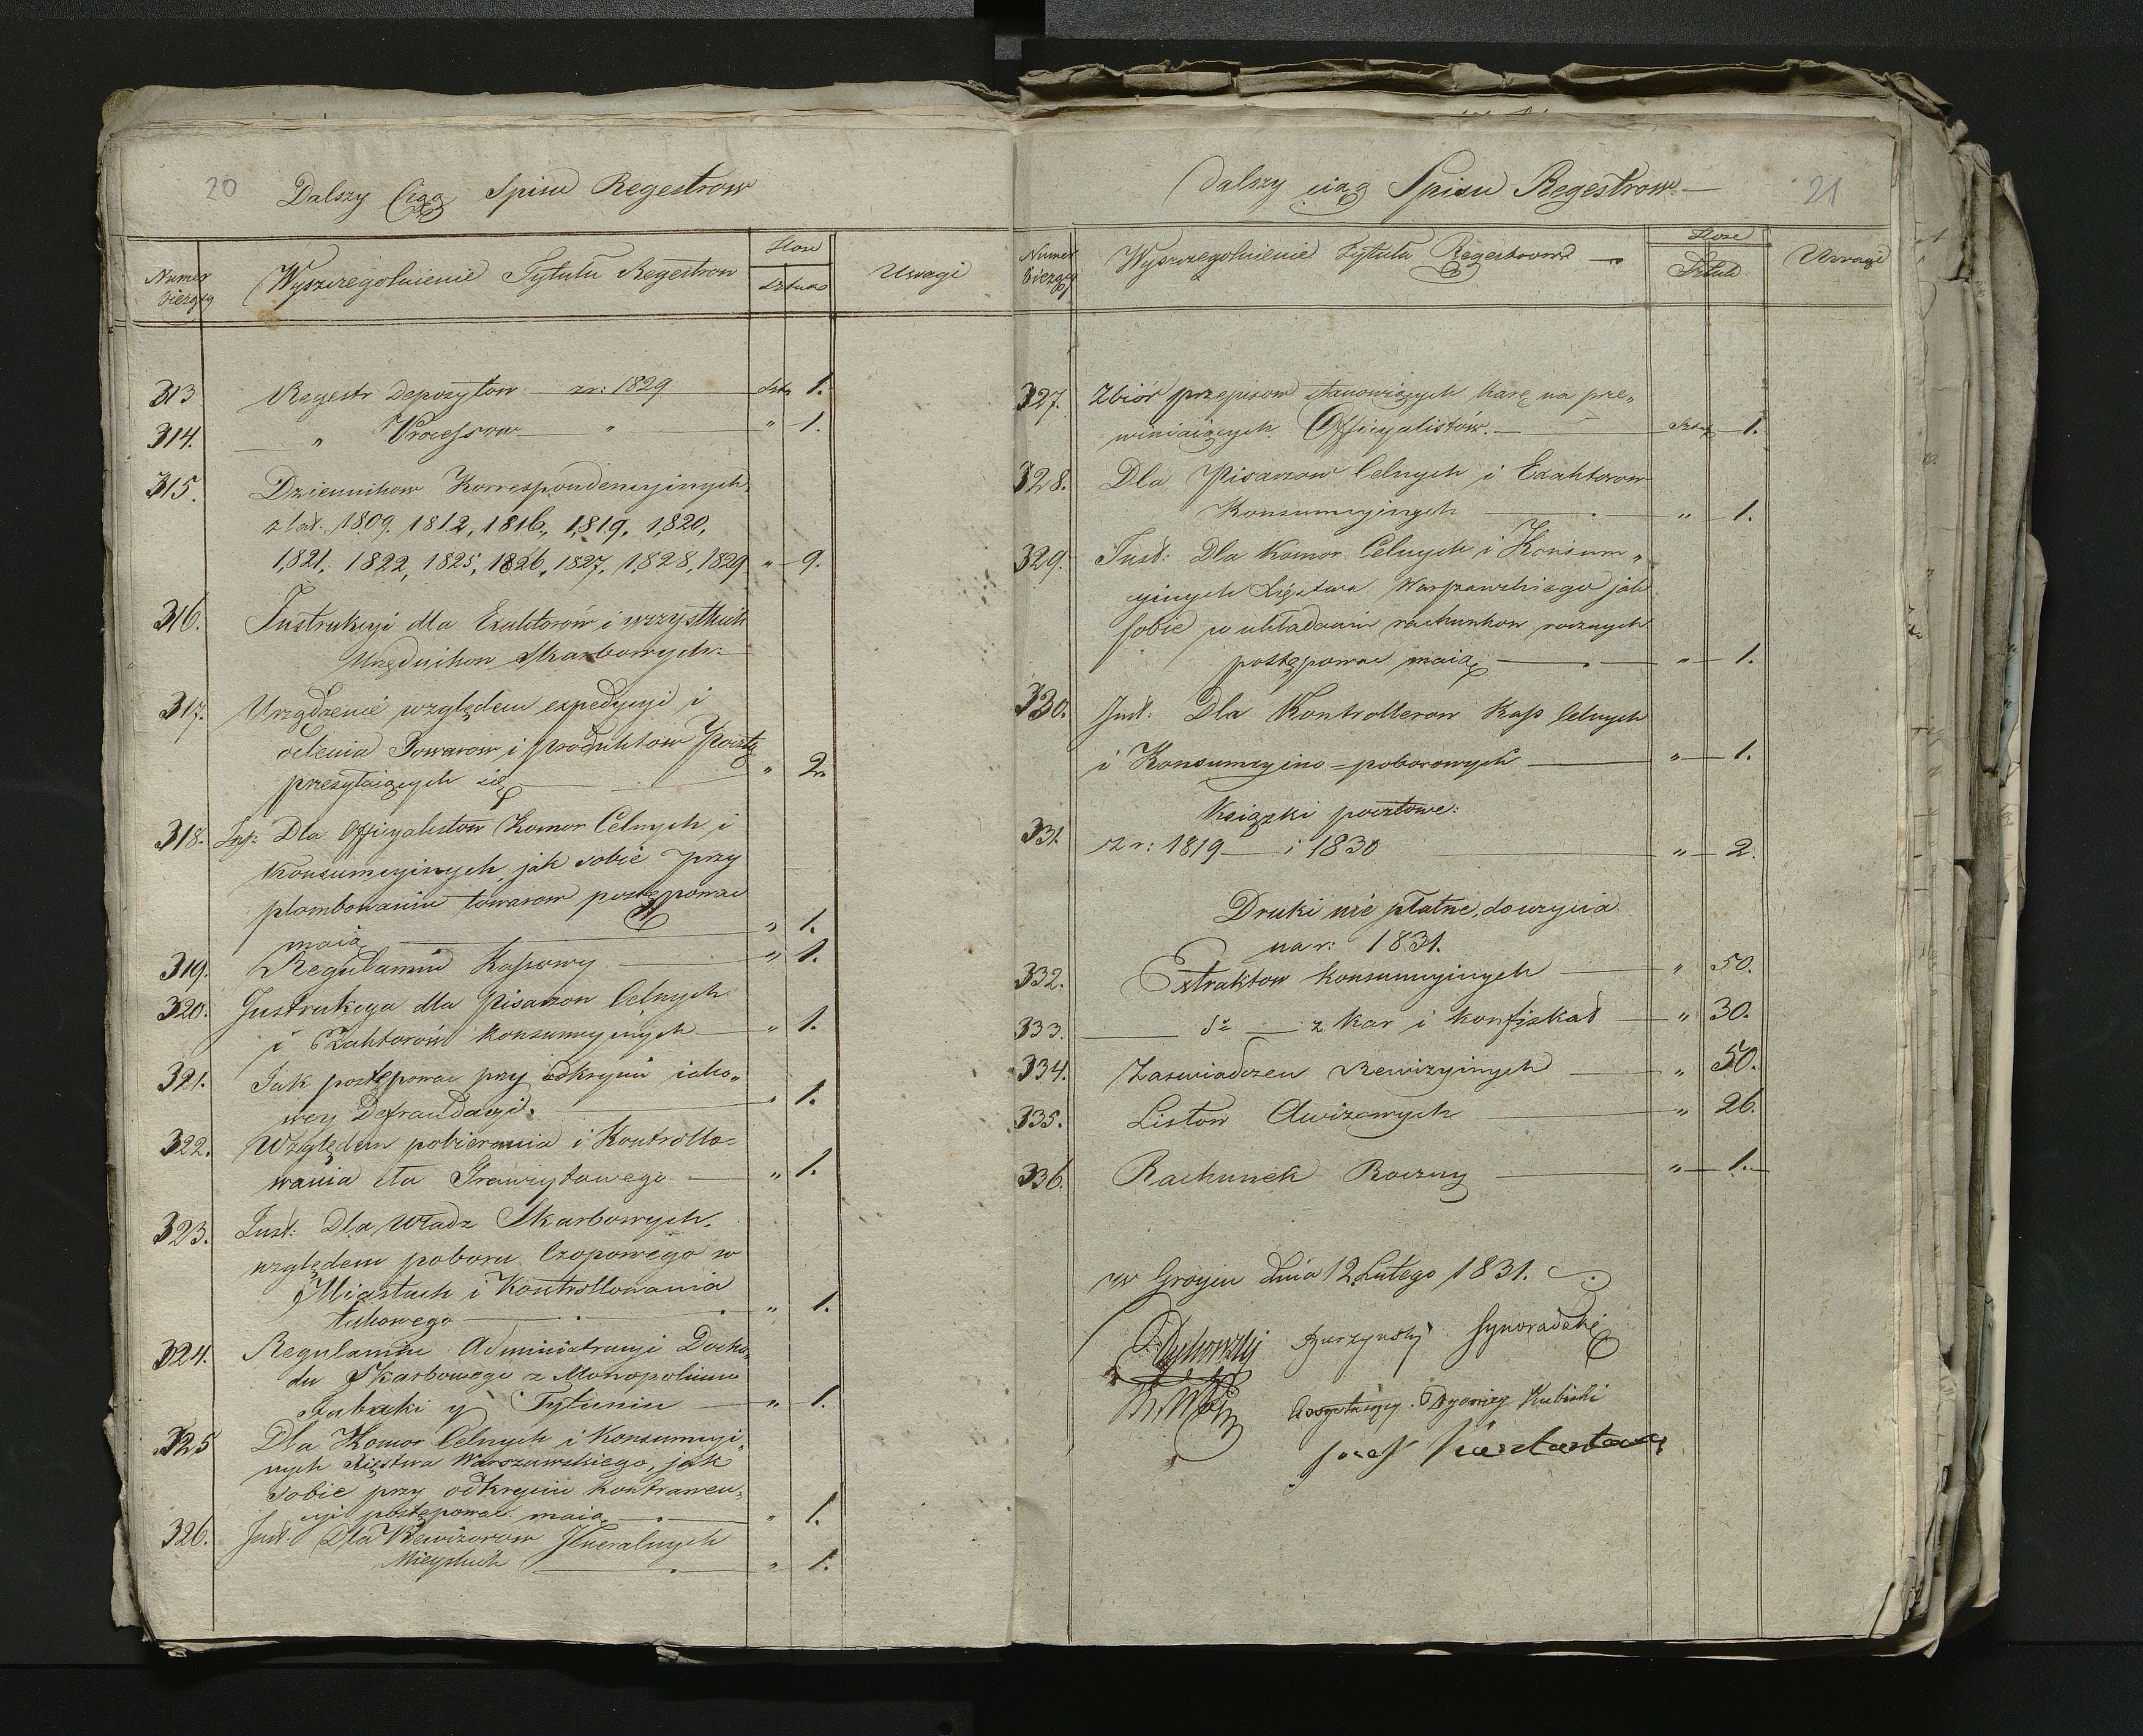 20
Dalszy Ciąg Spisu Regestrow
Numer bieżący
Wyszczegolnienie Tytułu Regestrow
Ilosc
Sztuk
Uwagi
313 Regestr Depozytow zr: 1829 Sztu 1.
314. " Processow " " 1.
315. Dziennikow Korrespondencyinych
z lat. 1809. 1812, 1816, 1819, 1820,
1821, 1822, 1825, 1826, 1827, 1828, 1829 " 9.
316. Instrukcyi dla Exaktorów i wszystkich
Urzędnikow Skarbowych
317. Urządzenie względem expedycyi i
oclenia Towarow i produktow Pocztą
przesyłaiących się " 2.
318. Ins: Dla Officyalistow Komor Celnych i
Konsumcyinych, jak sobie przy
plombowaniu towarow postępowac
maią " 1.
319. Regulamin Kassowy " 1.
320. Instrukcya dla Pisarzow Celnych
i Exaktorów Konsumcyinych " 1.
321. Jak postępowac przy odkryciu iako„
wey Defraudacyi. " 1.
322. Względem pobierania i Kontrollo=
wania cła Tranzytowego " 1.
323. Inst: Dla Władz Skarbowych.
względem poboru Czopowego w
Miastach i Kontrollowania
takowego " 1.
324. Regulamin Administracyi Docho„
du Skarbowego z Monopolium
Tabaki y Tytuniu " 1.
325 Dla Komor Celnych i Konsumcyi„
nych Xięstwa Warszawskiego, jak
sobie przy odkryciu kontrawen„
cyi postępowac maią " 1.
326. Inst. Dla Rewizorow Jeneralnych
Mieyskich " 1.
Dalszy ciąg Spisu Regestrow
21
Numer bieżący
Wyszczegolnienie Tytułu Regestrow
Ilosc
Sztuk
Uwagi
327. Zbiór przepisow stanowiących karę na prze„
winiaiących Officyalistów. Sztuk 1.
328. Dla Pisarzow Celnych i Exaktorow
Konsumcyinych " 1.
329. Inst: Dla Komor Celnych i Konsum„
cyinych Xięstwa Warszawskiego jak
sobie w układaniu rachunkow rocznych
postępowac maią " 1.
330. Inst: Dla Kontrollerow Kass Celnych
i Konsumcyino=poborowych " 1.
Książki pocztowe:
331. z r: 1819 i 1830 " 2.
Druki nie płatne, do uzycia
na r: 1831.
332. Extraktow konsumcyinych " 50.
333. do z kar i konfiskat " 30.
334. Zaswiadczen Rewizyinych " 50.
335. Listow Awizowych " 26.
336. Rachunek Roczny " 1.
w Groycu dnia 12 Lutego 1831.
Kubicki